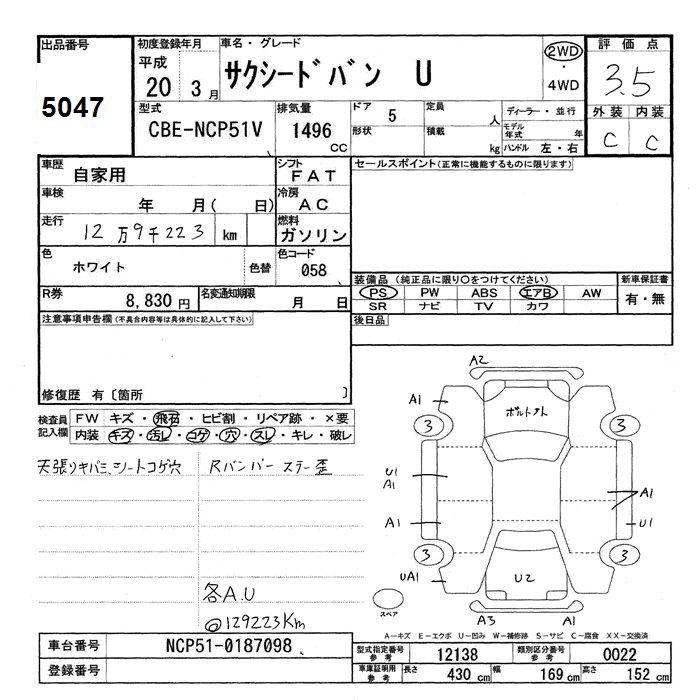 出品番号
5047
初度登録年月
平成
20 3月
車名・グレード
サクシードバン U
2WD
・
4WD
評価点
3.5
型式
CBE-NCP51V
排気量
1496
CC
ドア
5
定員
人
形状
積載
kg
ディーラー・並行
モデル年式
年
ハンドル 左・右
外装 内装
C C
車歴
自家用
シフト
FAT
車検
年 月( 日)
冷房
AC
走行
12万9千223 km
燃料
ガソリン
色
ホワイト
色替
色コード
058
R券
8,830円
名変通知期限
月 日
セールスポイント(正常に機能するものに限ります)
装備品 (純正品に限り○をつけてください)
PS PW ABS エアB AW
SR ナビ TV カワ
新車保証書
有・無
後日品
注意事項申告欄(不具合内容等は具体的に記入して下さい)
修復歴 有〔箇所 〕
検査員記入欄
FW キズ・飛石・ヒビ割・リペア跡・×要
内装 キズ・汚レ・コゲ・穴・スレ・キレ・破レ
天張リキバミ、シートコゲ穴
Rバンパーステー歪
各A.U
@129223Km
A2
A1
ボルトクト
3
3
U1
A1
A1
A1
U1
3
3
UA1
U2
スペア
A3
A1
A-キズ E-エクボ U-凹み W-補修跡 S-サビ C-腐食 XX-交換済
車台番号
NCP51-0187098
登録番号
型式指定番号
参考
12138
類別区分番号
参考
0022
車庫証明用
参考
長さ
430 cm
幅
169 cm
高さ
152 cm